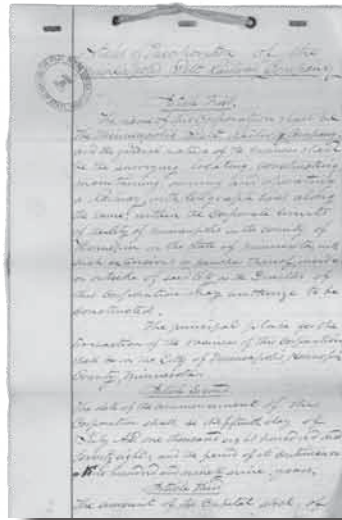 Articles of Incorporation of the
Minneapolis Belt Railway Company
Article First.
The name of this Corporation shall be
The Minneapolis Belt Railway Company
and the general nature of its business shall
be the surveying, locating, constructing
maintaining, owning and operating
a Railway with telegraph lines along
the same, within the Corporate limits
of the City of Minneapolis in the County of
Hennepin in the State of Minnesota with
such extensions or branches thereof, inside
or outside of said City as the Directors of
this Corporation may authorize to be
constructed.
The principal place for the
transaction of the business of this Corporation
shall be in the City of Minneapolis, Hennepin
County, Minnesota.
Article Second
The date of the commencement of this
Corporation shall be the day of
July A.D. one thousand eight hundred and
seventy eight, and the period of its continuance
hundred and ninety nine years.
Article Third
The amount of the Capital Stock of